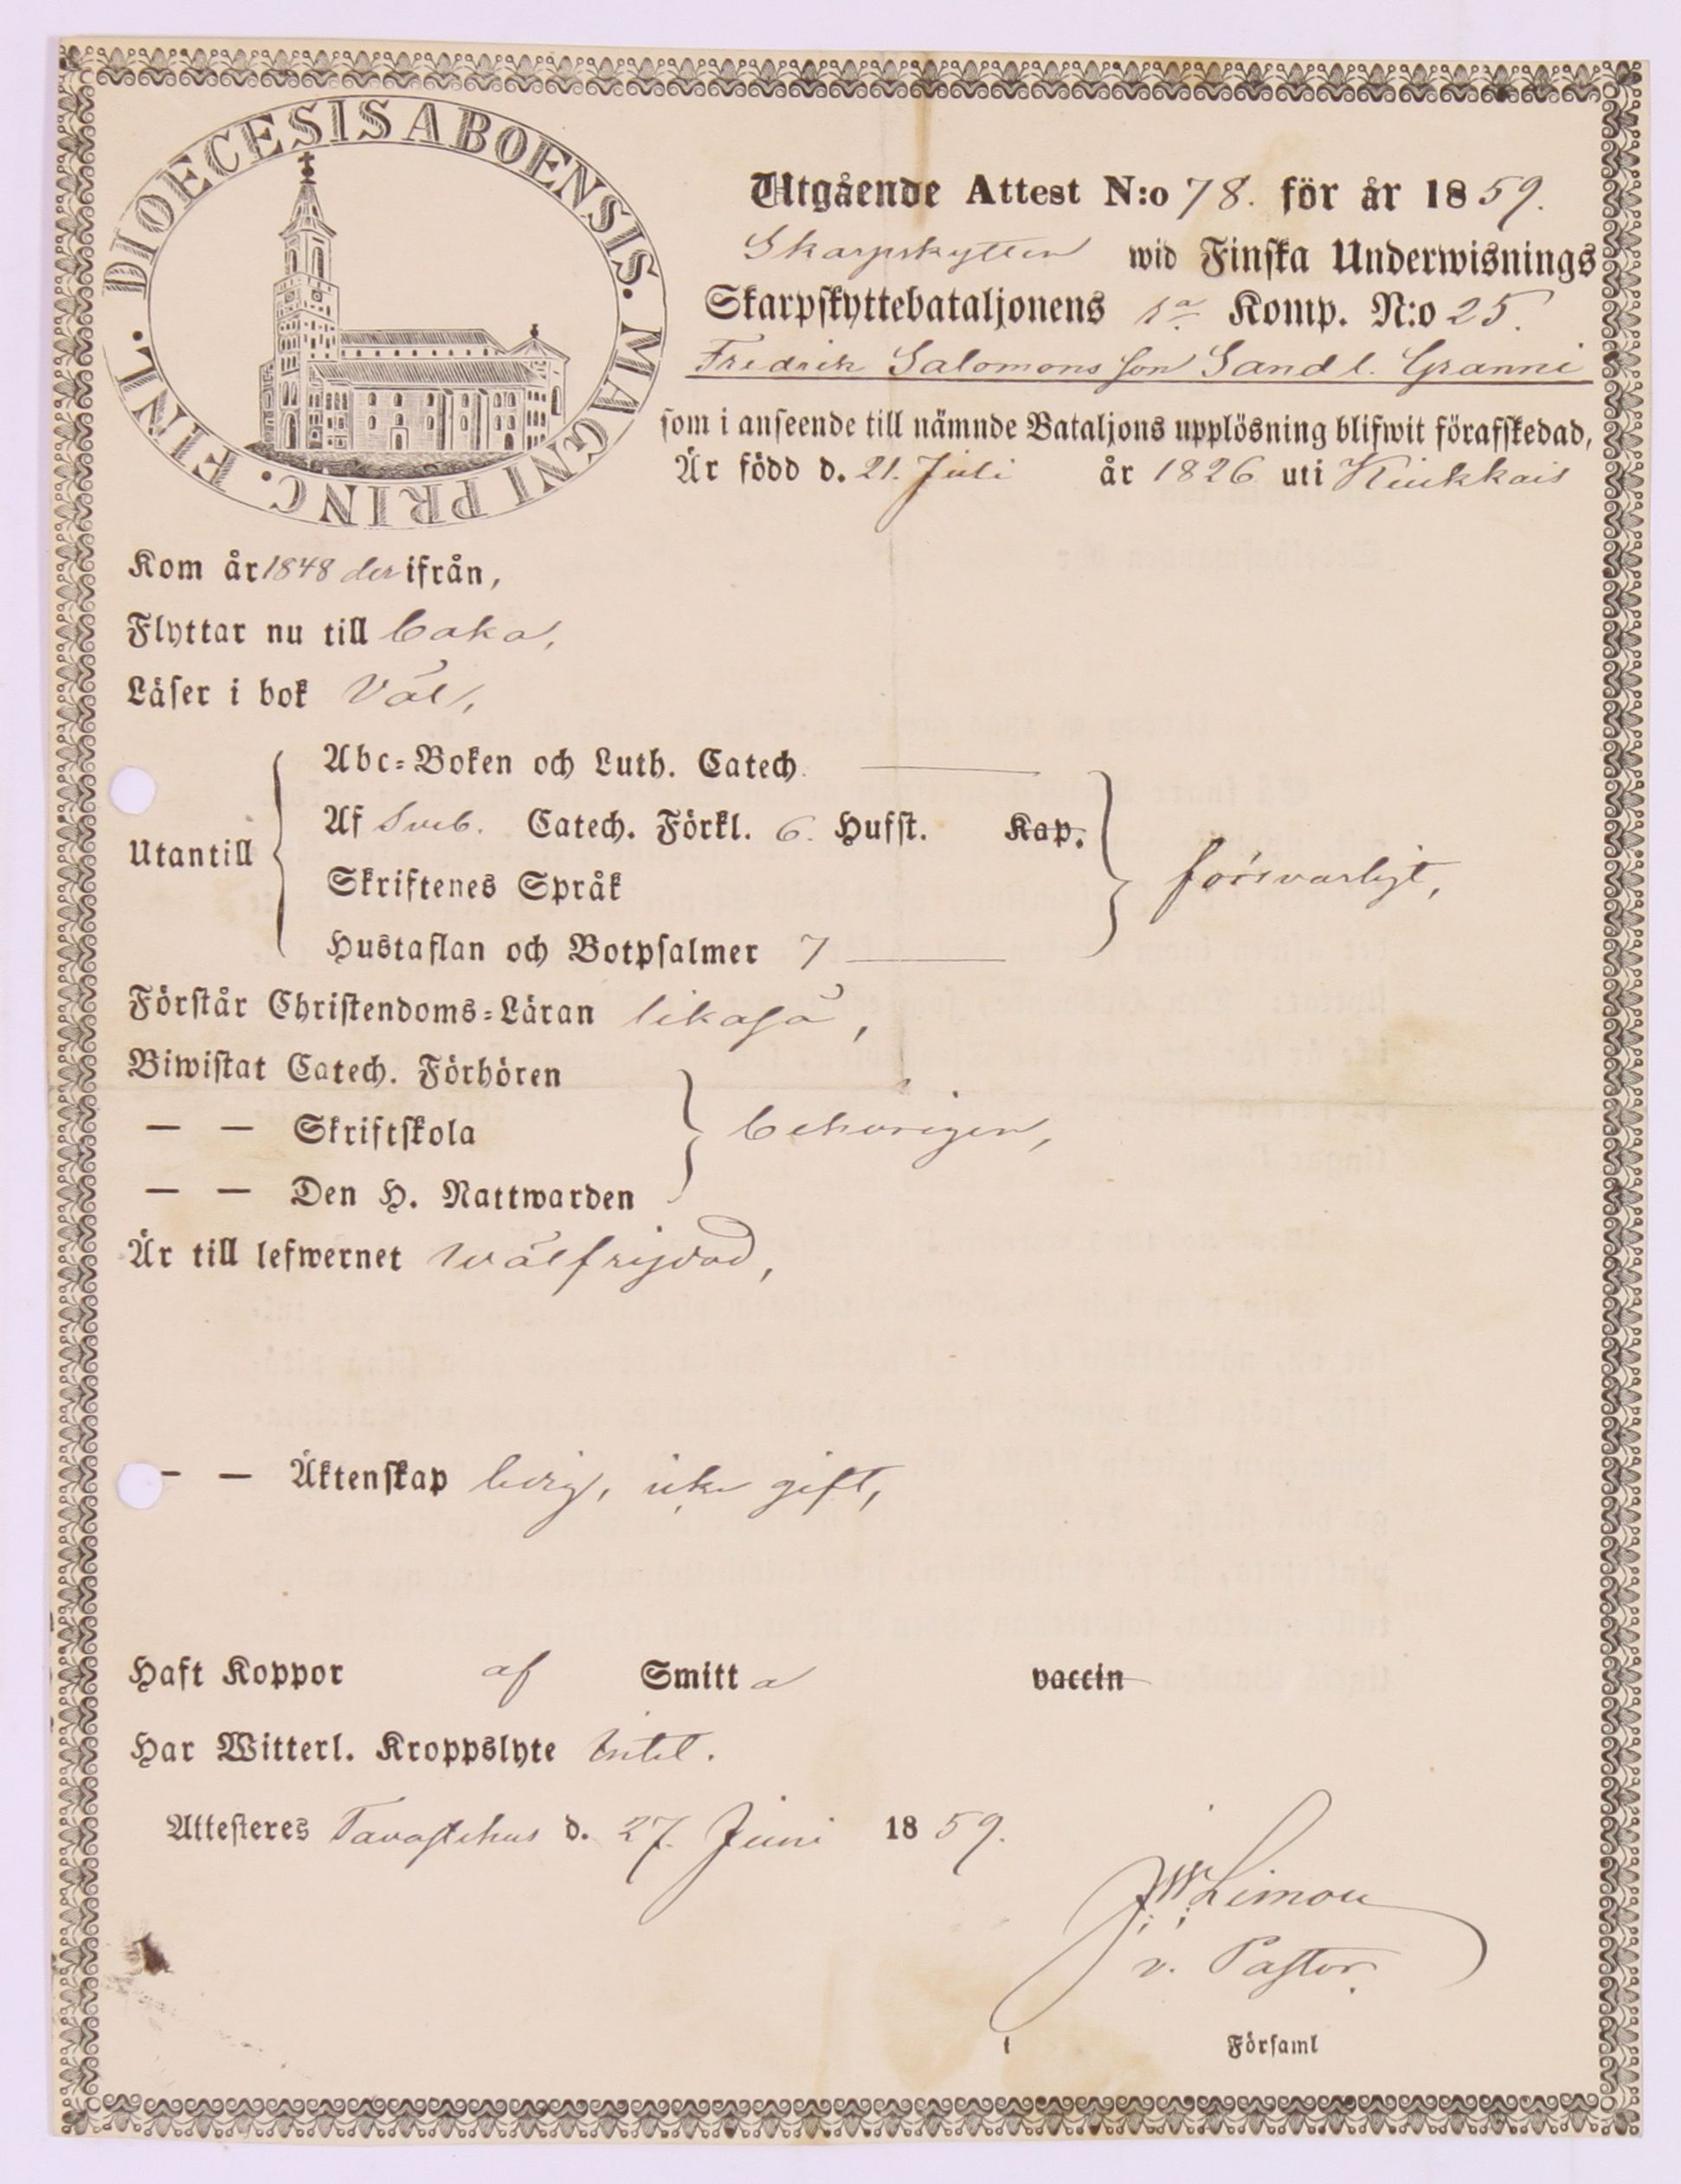 DIOECESIS ABOENSIS. MAGNI PRINC. FINL.
Utgående Attest N:o 78. för år 1859.
Skarpskytten wid Finska Underwisnings
Skarpskyttebataljonens 1a Komp. N:o 25.
Fredrik Salomons son Sand l. Granni
som i anseende till nämnde Bataljons upplösning blifwit förafskedad,
Är född d. 21. Juli år 1826 uti Kiukkais
Kom år 1848 der ifrån,
Flyttar nu till
Läser i bok Väl,
Abc=Boken och Luth. Catech.
Utantill
Af Sveb. Catech. Förkl. 6. Hufst. Kap.
försvarligt,
Skriftenes Språk
Hustaflan och Botpsalmer 7
Förstår Christendoms=Läran likaså,
Biwistat Catech. Förhören
— — Skriftskola
behörigen,
— — Den H. Nattwarden
Är till lefwernet wälfrejdad,
— — Äktenskap ledig, icke gift,
Haft Koppor af Smitta vaccin
Har Witterl. Kroppslyte intet.
Attesteres Tavastehus d. 27. Juni 1859.
v. Pastor.
i Församl